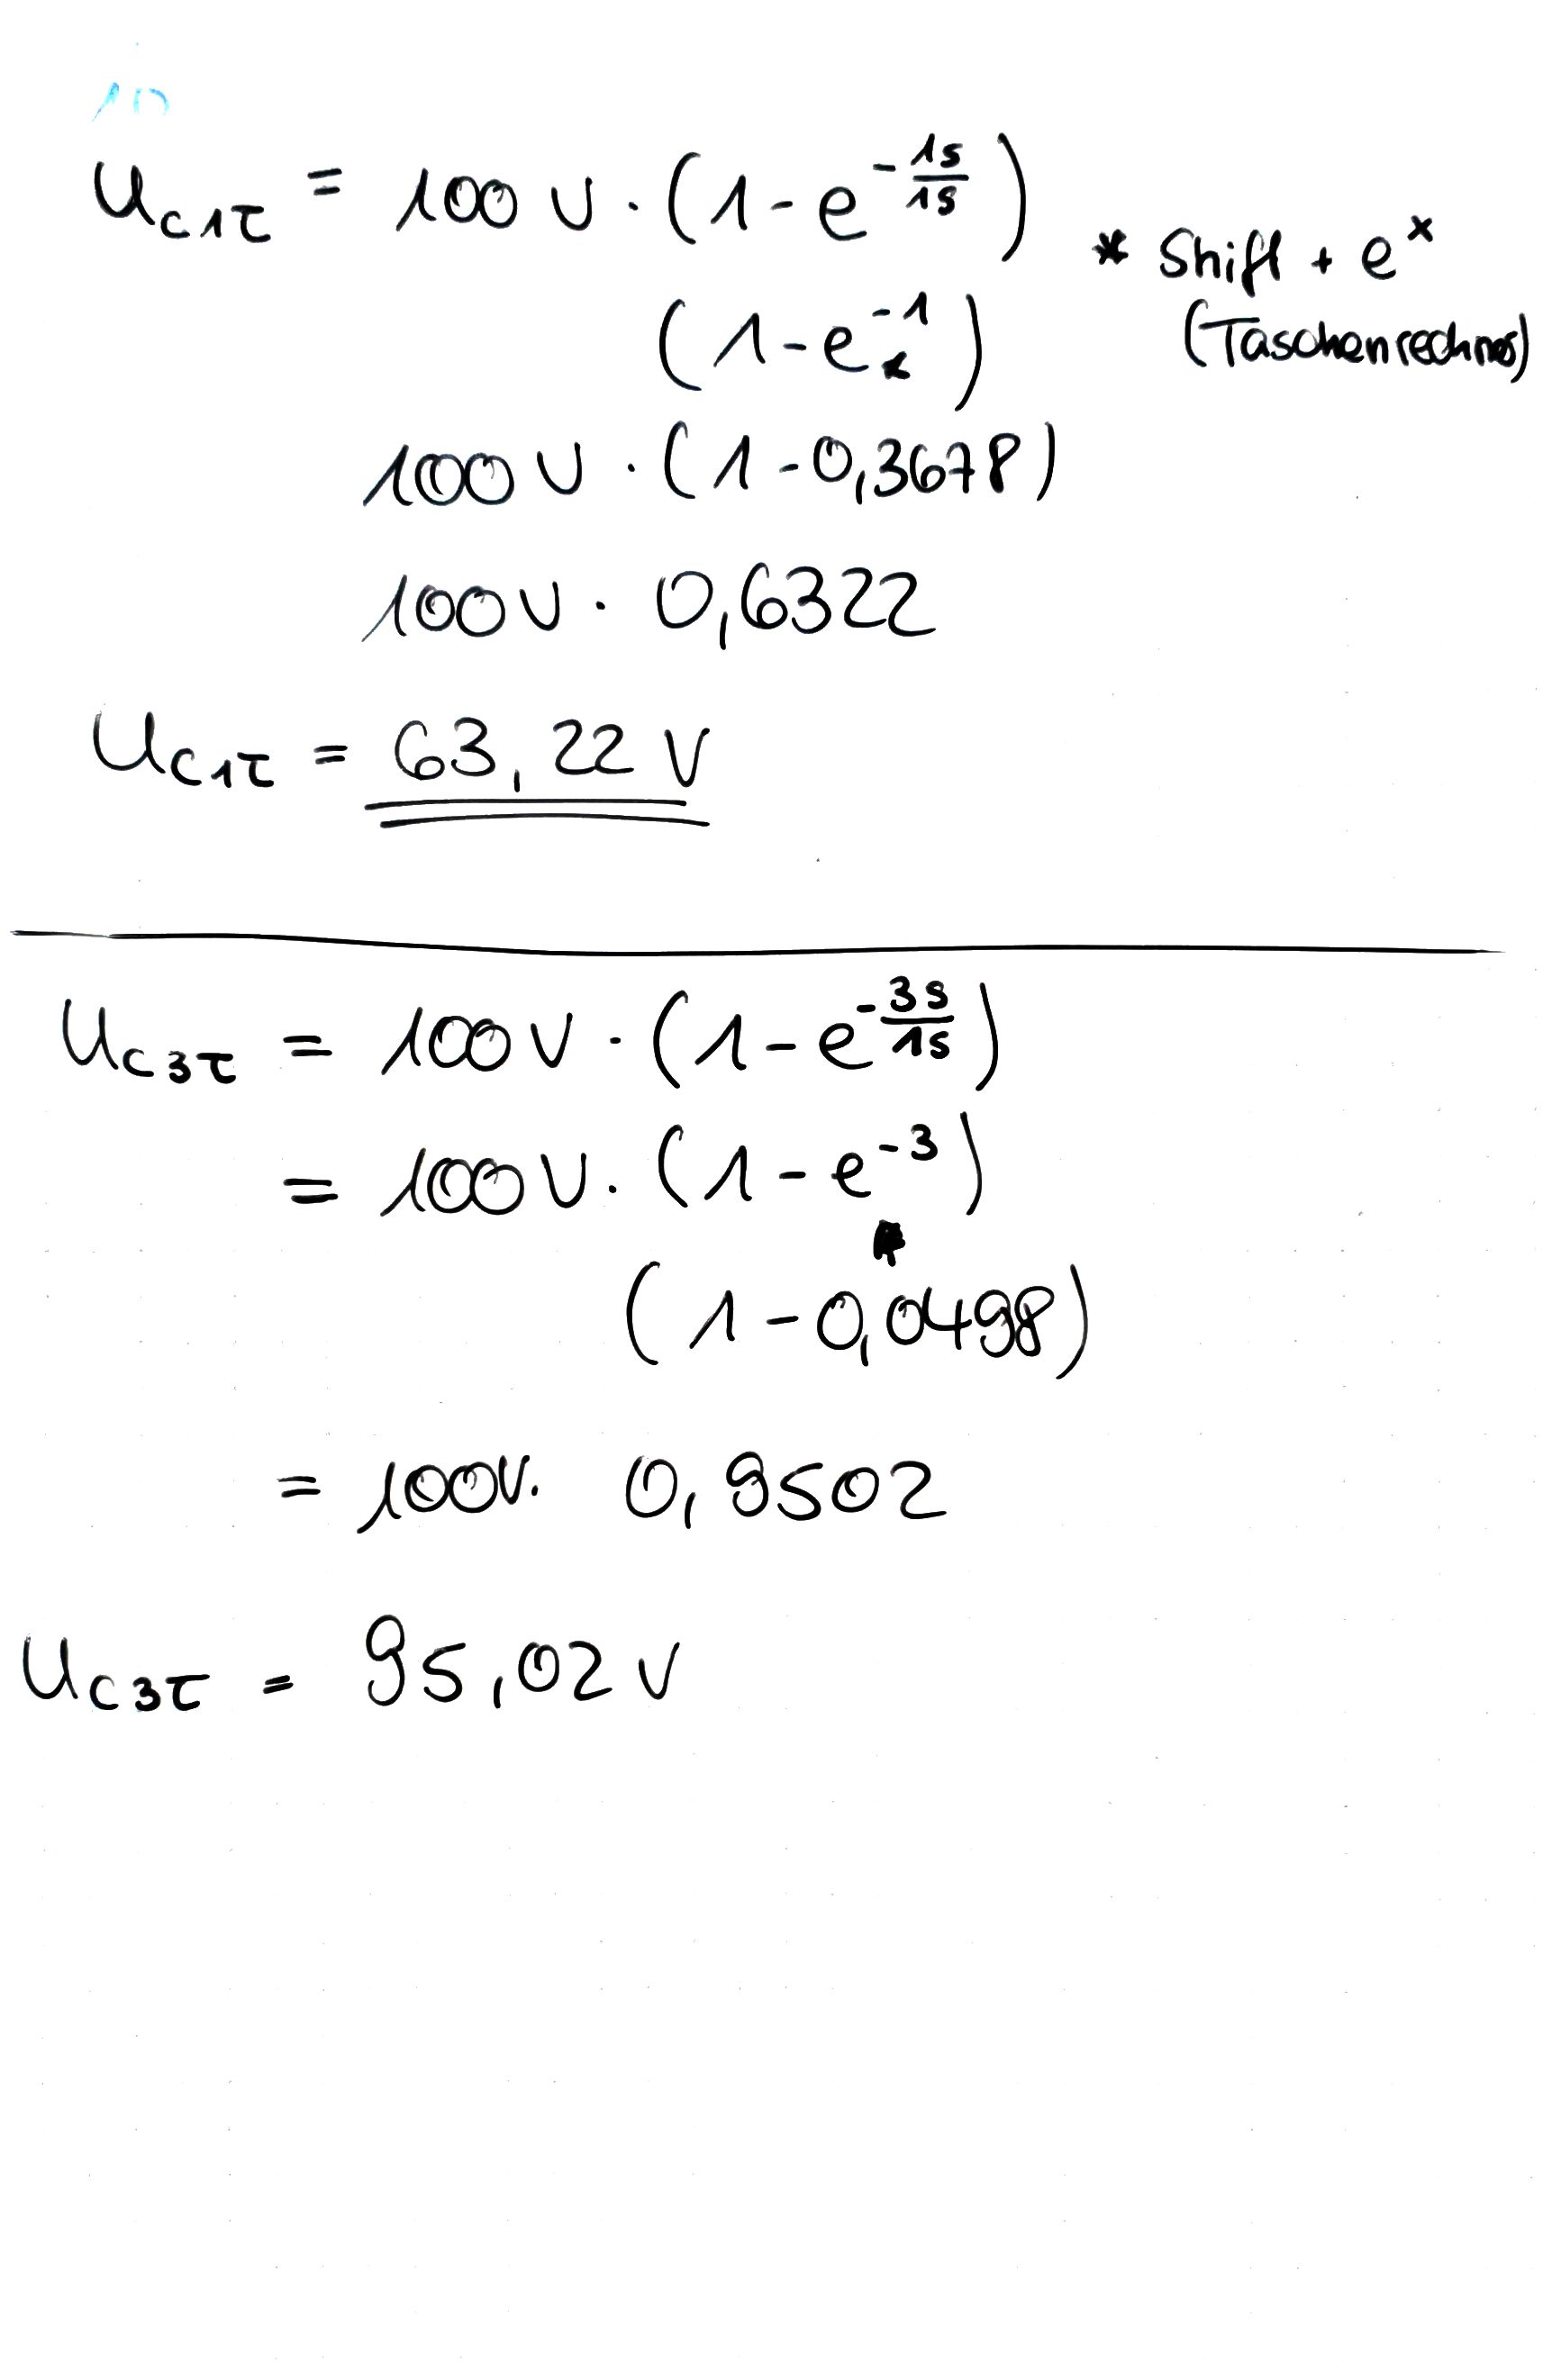 U_C1τ = 100 V · (1 - e^(-1s/1s))
* Shift + e^x
(Taschenrechner)
(1 - e^-1)*
100 V · (1 - 0,3678)
100 V · 0,6322
U_C1τ = 63,22 V
U_C3τ = 100 V · (1 - e^(-3s/1s))
= 100 V · (1 - e^-3)
*
(1 - 0,0498)
= 100 V · 0,9502
U_C3τ = 95,02 V